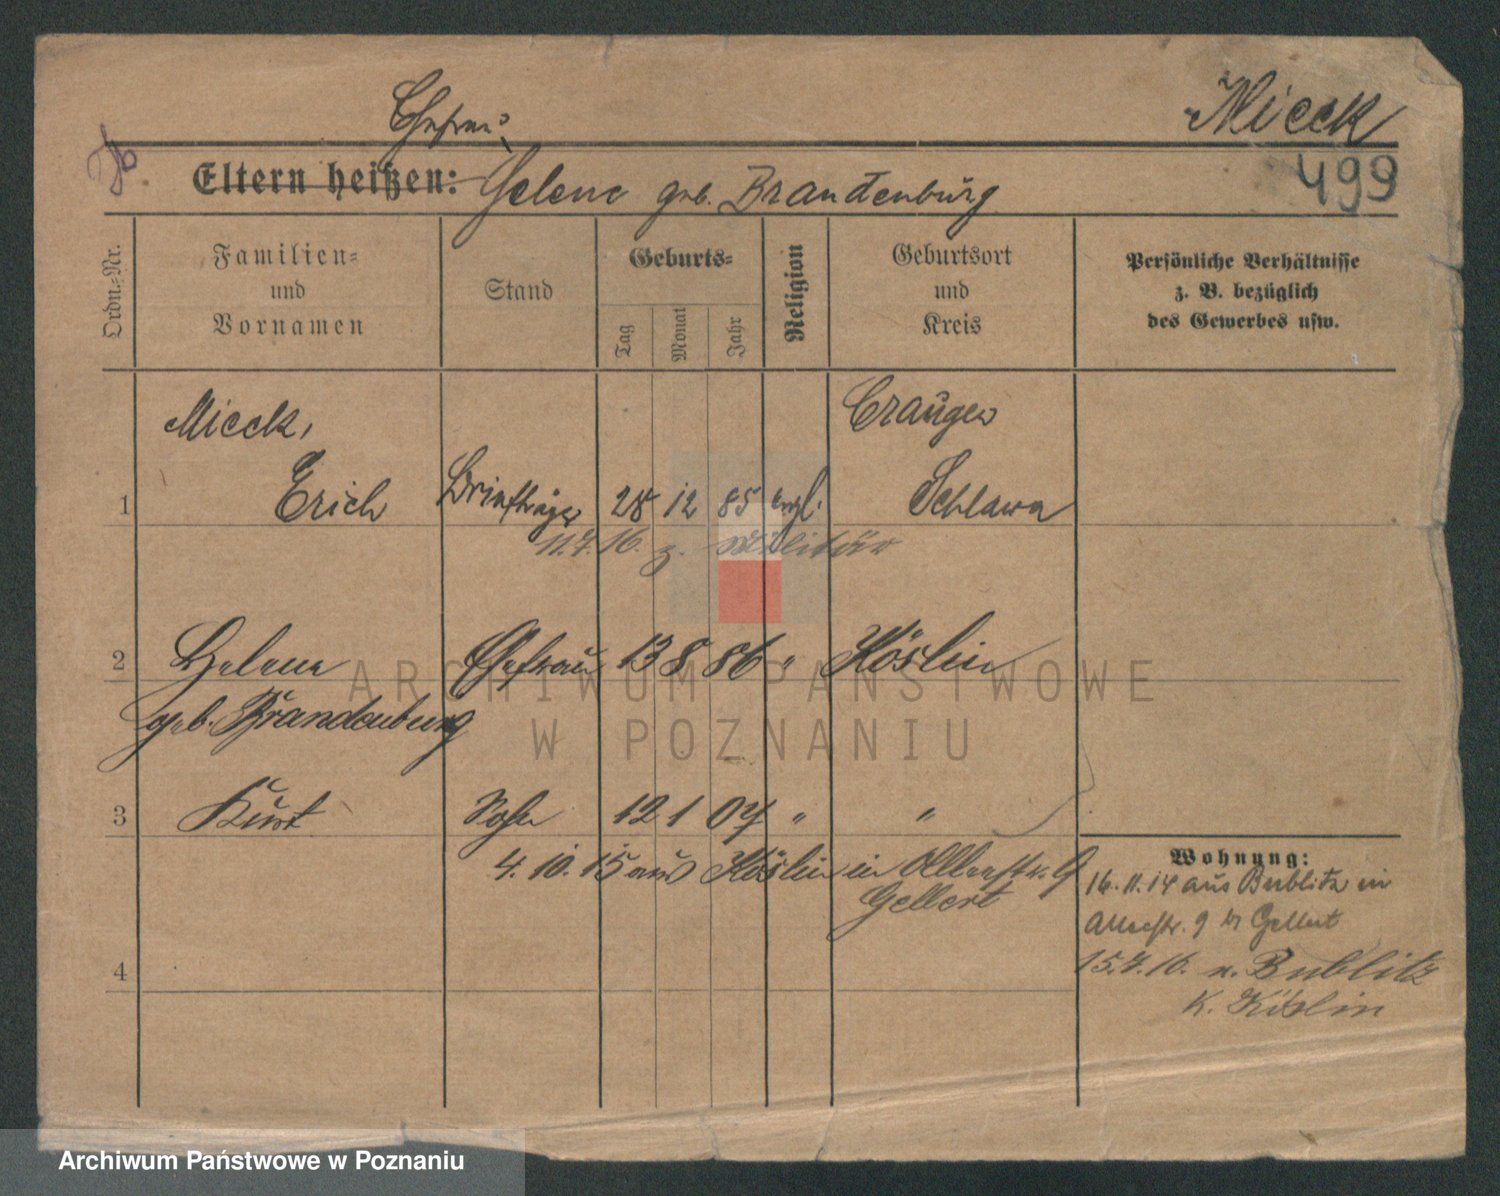 Ehefrau
Mieck
Eltern heißen: Helene geb. Brandenburg
499
Ordn.-Nr.
Familien-
und
Vornamen
Stand
Geburts-
Tag
Monat
Jahr
Religion
Geburtsort
und
Kreis
Persönliche Verhältnisse
z. B. bezüglich
des Gewerbes usw.
Mieck,
Crangen
1 Erich Briefträger 28 12 85 evgl. Schlawe
11.7.16. z. Militär
2 Helene Ehefrau 13 8 86 " Köslin
geb. Brandenburg
3 Kurt Sohn 12 1 07 " "
4.10.15 aus Köslin in Alleestr. 9
Gellert
Wohnung:
16.11.14 aus Bublitz in
Alleestr. 9 b/ Gellert
15.7.16. n. Bublitz
K. Köslin
4
ARCHIWUM PAŃSTWOWE
W POZNANIU
Archiwum Państwowe w Poznaniu